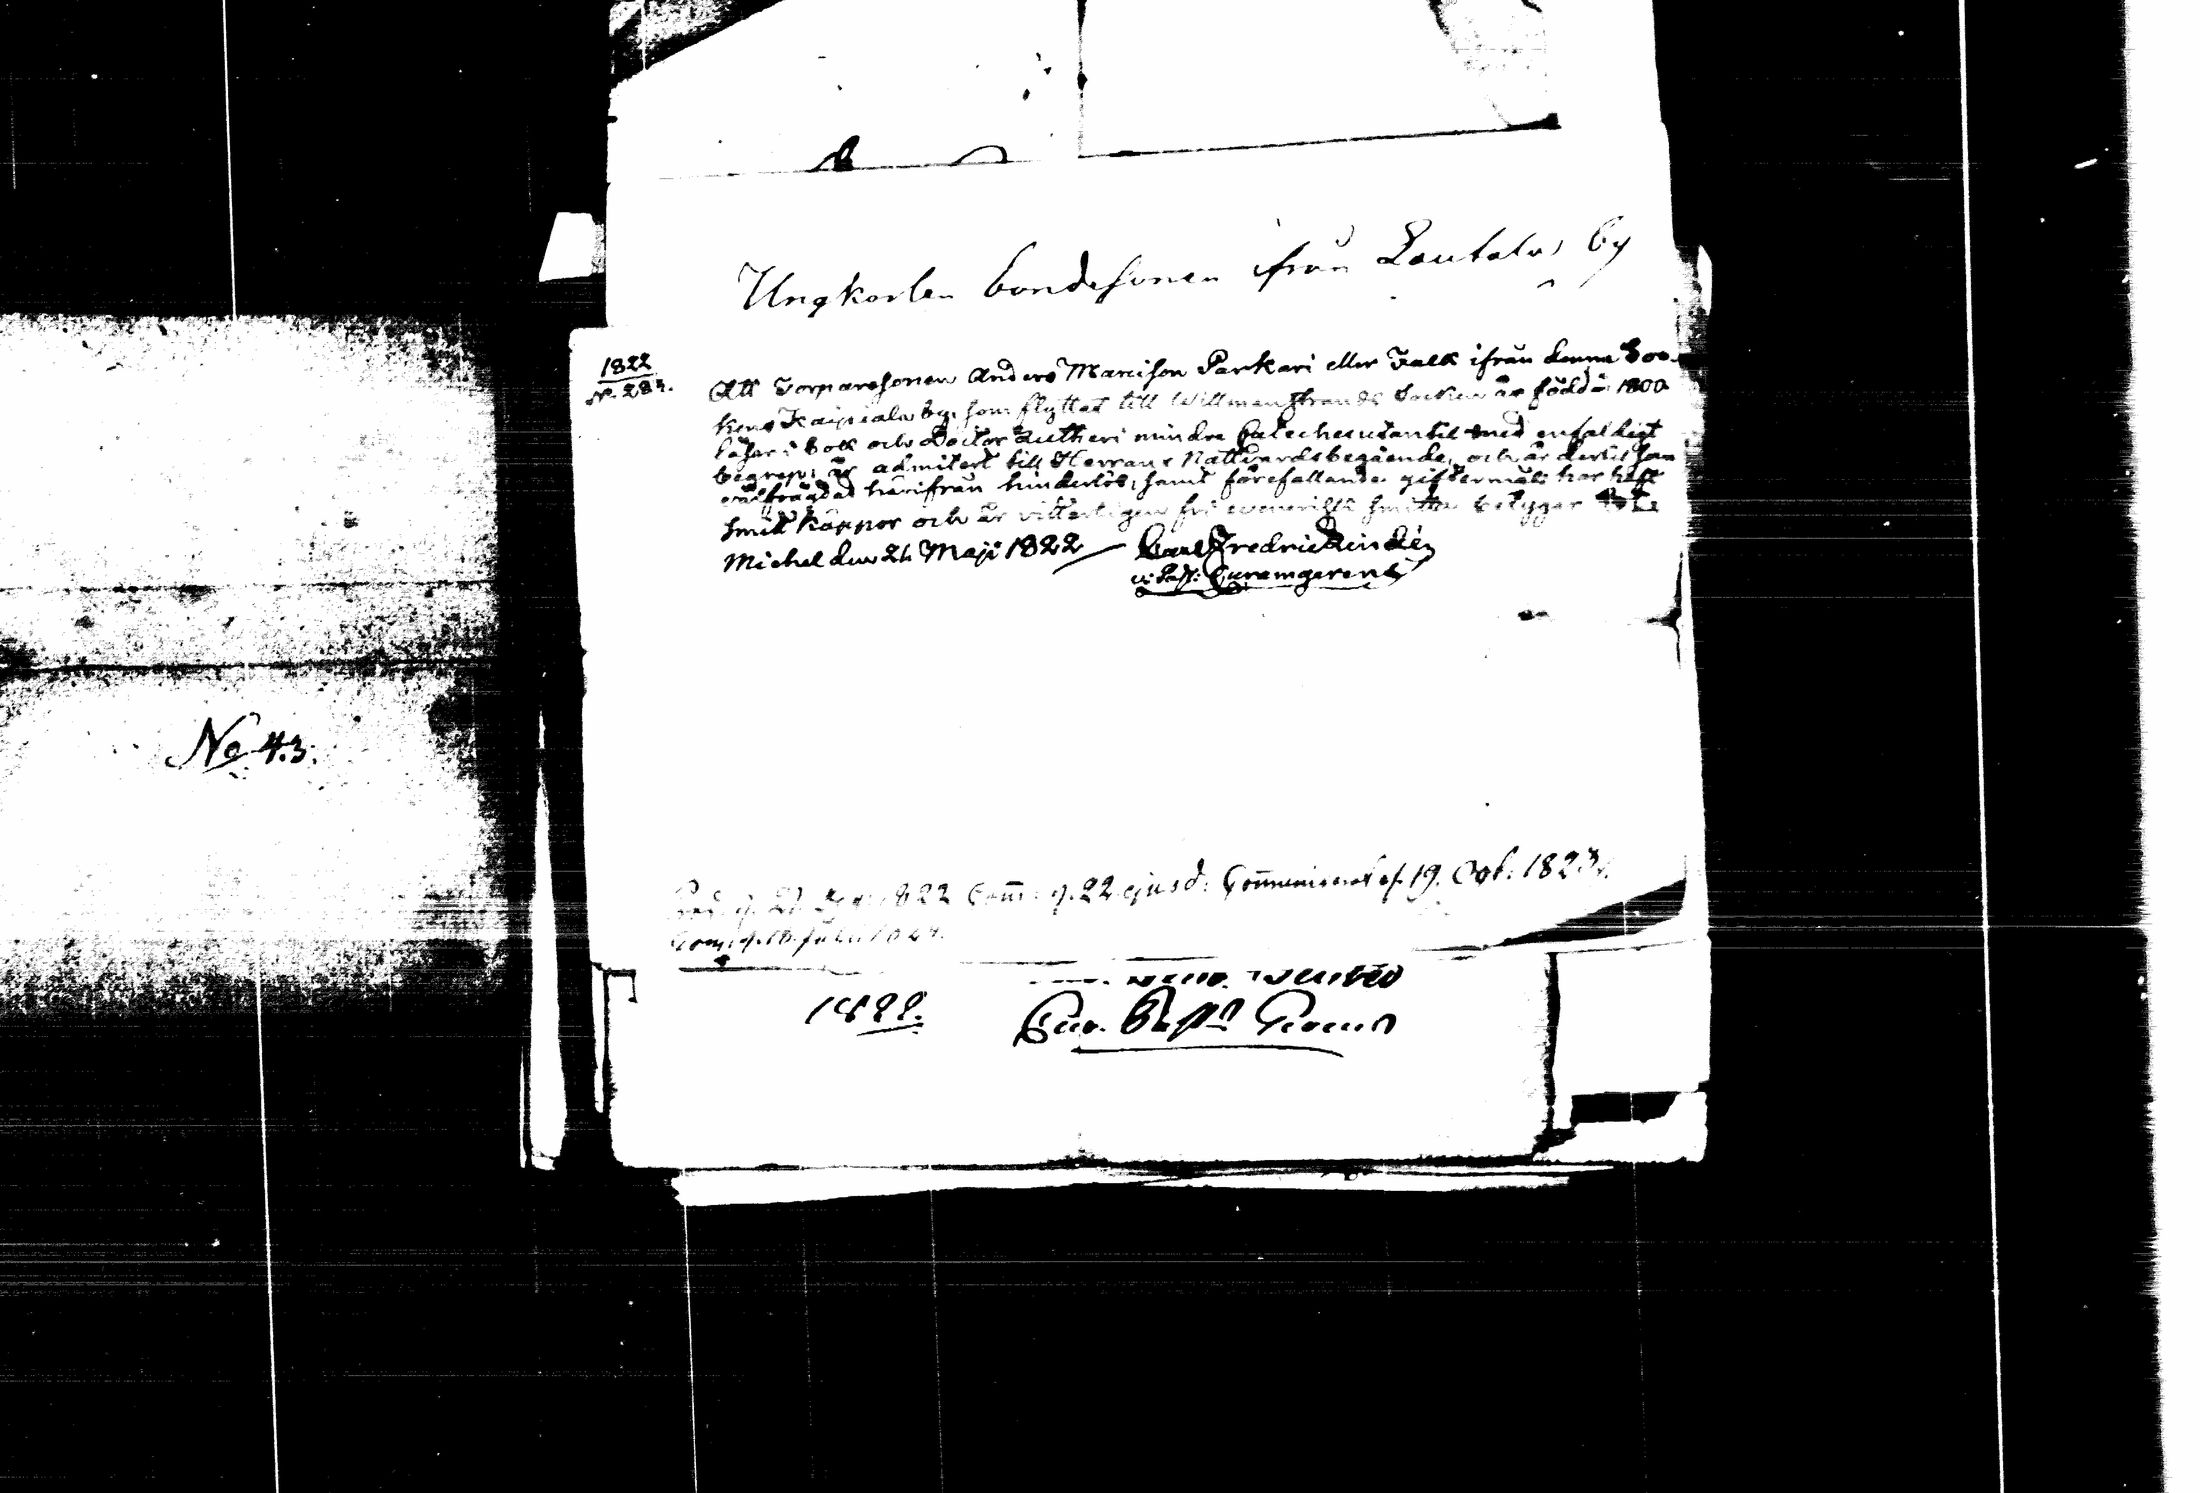 Ungkarlen bondesonen ifrån Lautala by
1822
N. 284.
Att Torparesonen Anders Marcison Parkari eller Falk ifrån denna Soc-
kens Kaipiala by, som flyttat till Willmanstrands Socken är född år 1800
läser i bok och Doctor Lutheri mindre Cateches utantil med enfaldigt
begrep, är admitert till Herrans Nattvards begående, och är dertil som
härifrån hinderlös, samt förefallande giftermål; har haft
Smitt Koppor och är vitterligen fri venerisk smitta betygar
Michel den 24 Maji 1822 Carl Fredric
v: Past: Curamgerens
No 43.
1822 Com̄: d. 22 ejusd: Com̄unicerat d. 19. Oct: 1823.
1822.